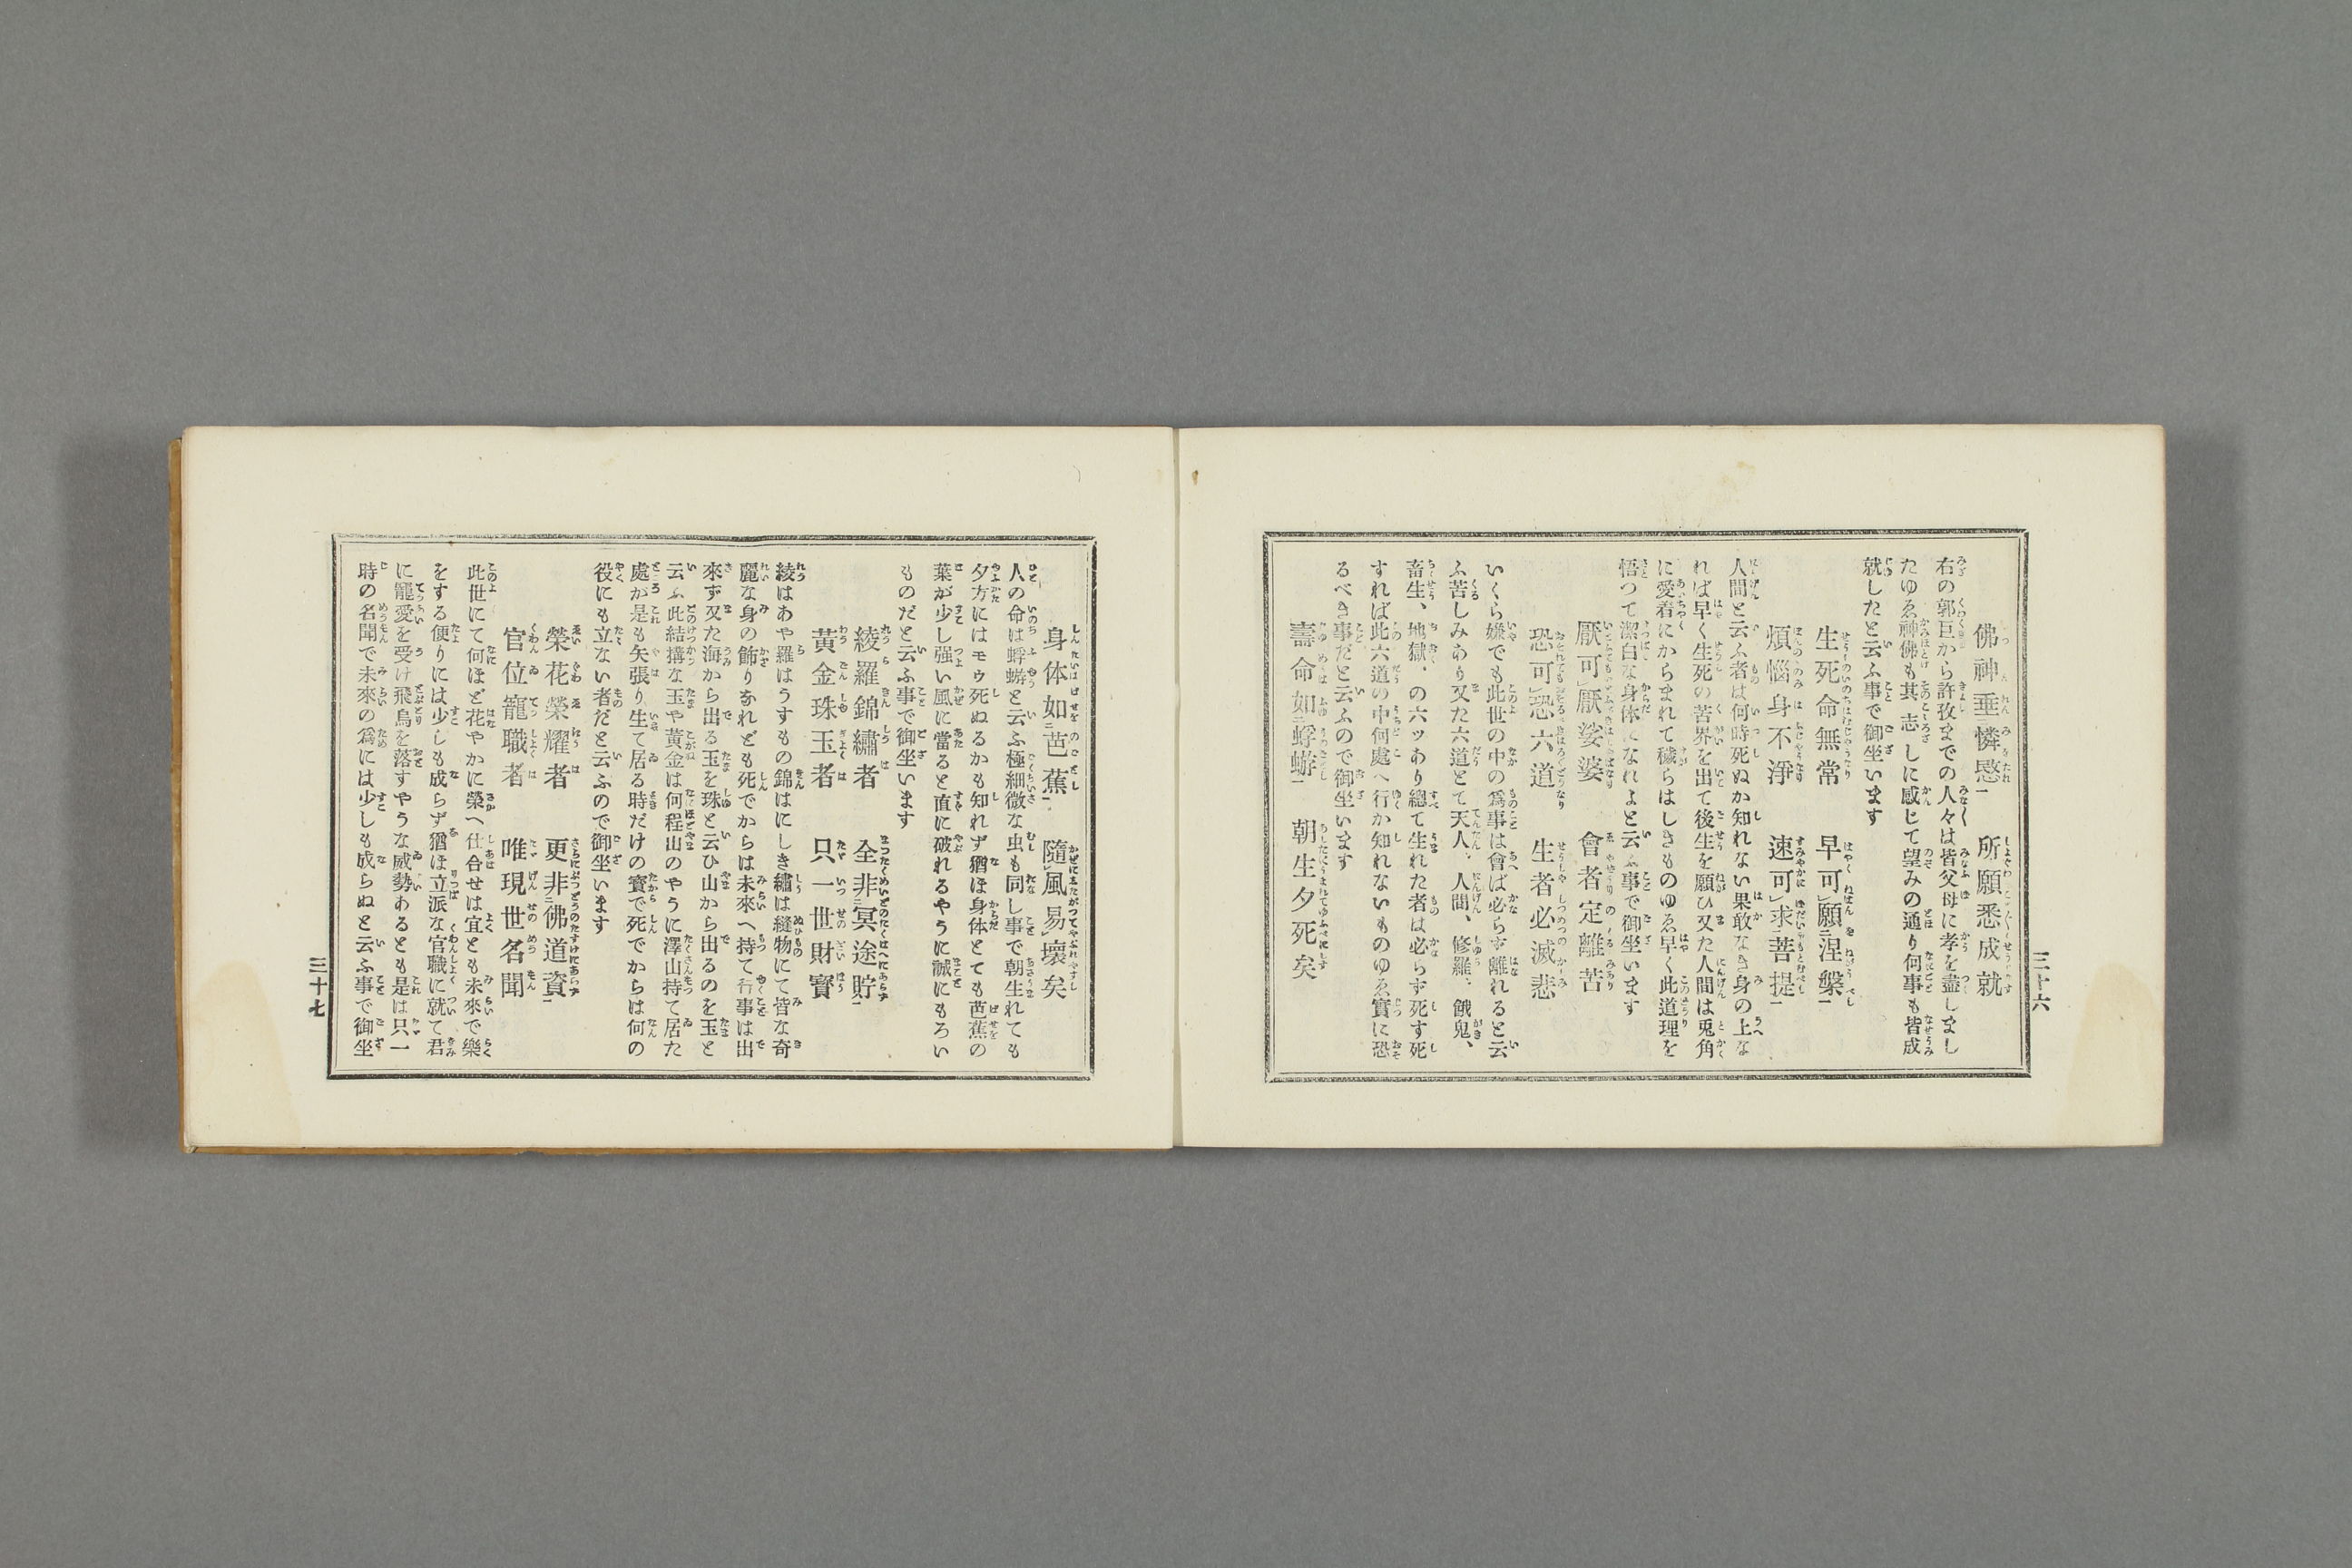 佛神垂憐愍 所願悉成就
右の郭巨から許孜までの人々は皆父母に孝を盡しまし
たゆゑ神佛も其志しに感じて望みの通り何事も皆成
就したと云ふ事で御坐います
生死命無常 早可願涅槃
煩惱身不淨 速可求菩提
人間と云ふ者は何時死ぬか知れない果敢なき身の上な
れば早く生死の苦界を出て後生を願ひ又た人間は兎角
に愛着にからまれて穢らはしきものゆゑ早く此道理を
悟つて潔白な身体になれよと云ふ事で御坐います
厭可厭娑婆 會者定離苦
恐可恐六道 生者必滅悲
いくら嫌でも此世の中の爲事は會ば必らず離れると云
ふ苦しみあり又た六道とて天人、人間、修羅、餓鬼、
畜生、地獄、の六ツあり總て生れた者は必らず死す死
すれば此六道の中何處へ行か知れないものゆゑ實に恐
るべき事だと云ふので御坐います
壽命如蜉蝣 朝生夕死矣
三十六
身体如芭蕉 隨風易壞矣
人の命は蜉蝣と云ふ極細微な虫も同し事で朝生れても
夕方にはモウ死ぬるかも知れず猶ほ身体とても芭蕉の
葉が少し强い風に當ると直に破れるやうに誠にもろい
ものだと云ふ事で御坐います
綾羅錦繡者 全非冥途貯
黄金珠玉者 只一世財寳
綾はあや羅はうすもの錦はにしき繡は縫物にて皆な奇
麗な身の飾りなれども死でからは未來へ持て行事は出
來ず又た海から出る玉を珠と云ひ山から出るのを玉と
云ふ此結搆な玉や黄金は何程山のやうに澤山持て居た
處が是も矢張り生て居る時だけの寳で死でからは何の
役にも立ない者だと云ふので御坐います
榮花榮耀者 更非佛道資
官位寵職者 唯現世名聞
此世にて何ほど花やかに榮へ仕合せは宜とも未來で樂
をする便りには少しも成らず猶ほ立派な官職に就て君
に寵愛を受け飛鳥を落すやうな威勢あるとも是は只一
時の名聞で未來の爲には少しも成らぬと云ふ事で御坐
三十七